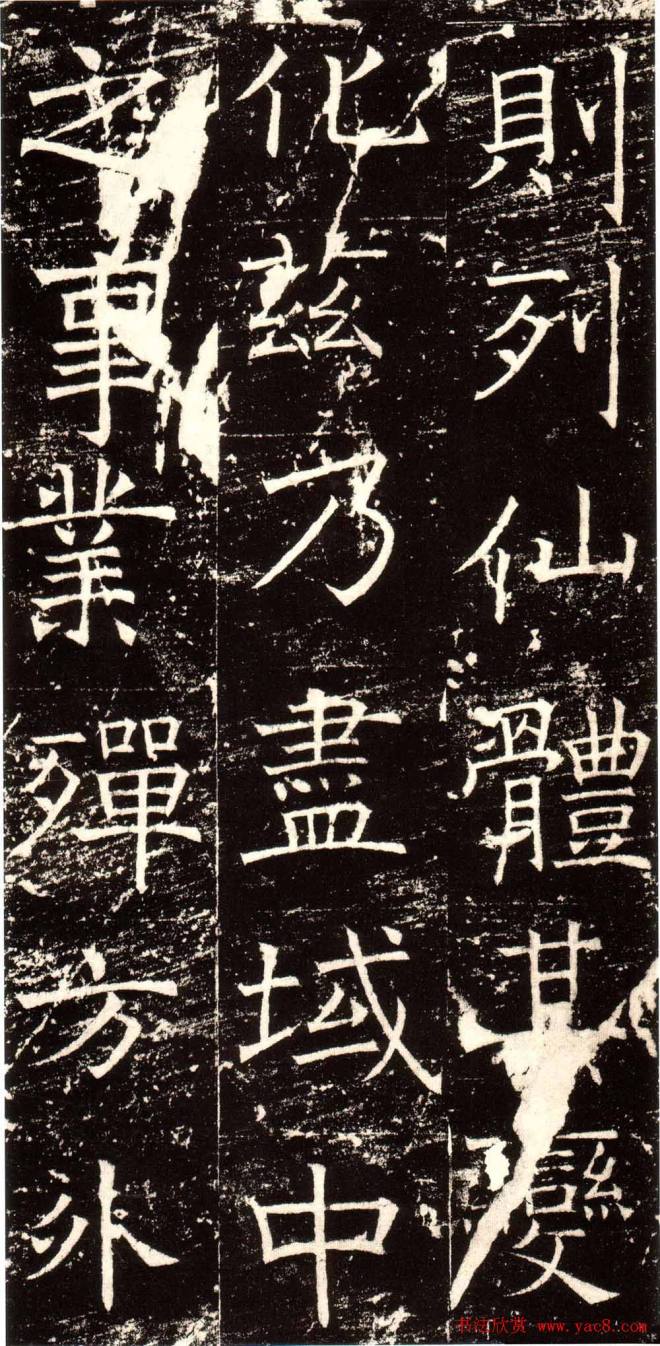 則列仙體其變
化茲乃盡域中
之事業殫方外
书法欣赏·www.yac8.com